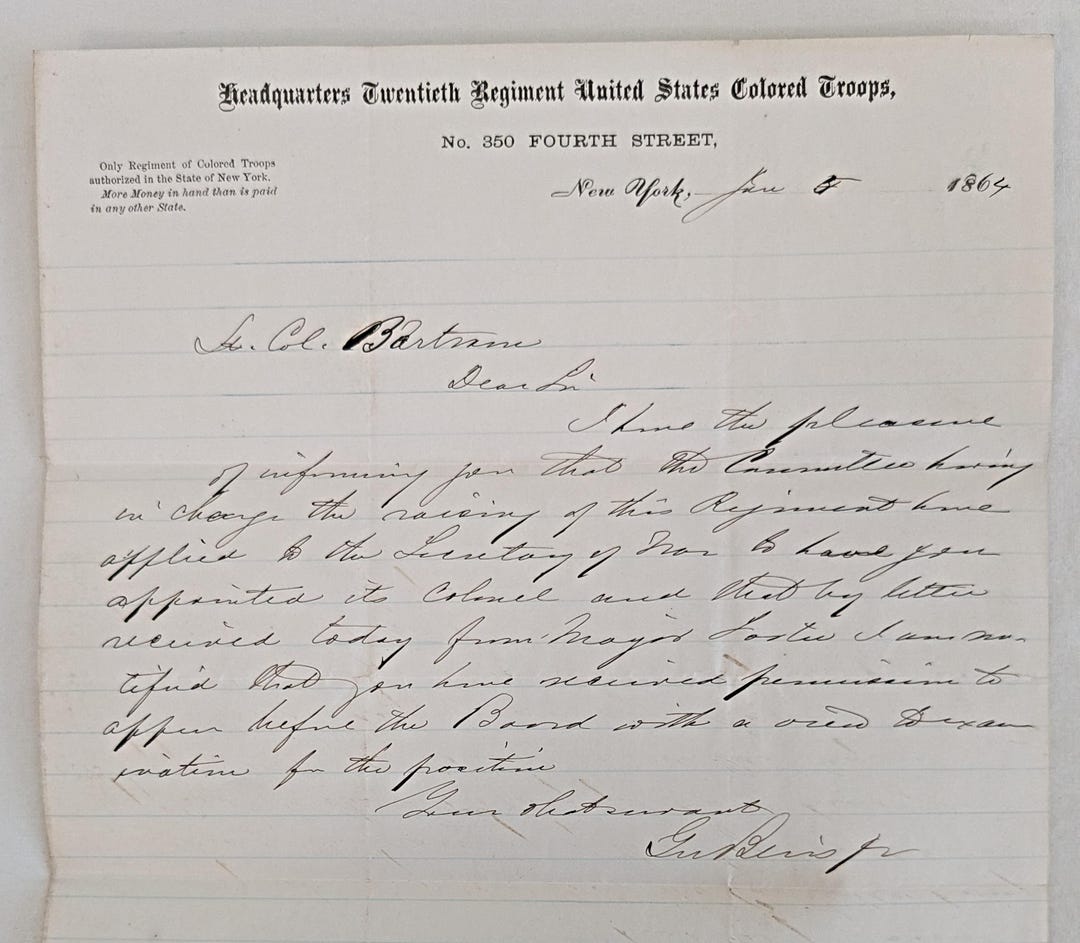 Headquarters Twentieth Regiment United States Colored Troops,
No. 350 FOURTH STREET,
Only Regiment of Colored Troops
authorized in the State of New York.
More Money in hand than is paid
in any other State.
New York, Jan 5 1864
Lt. Col. Bartram
Dear Sir
I have the pleasure
of informing you that the Committee having
in charge the raising of this Regiment have
applied to the Secretary of War to have you
appointed its Colonel and that by letter
received today from Major Foster I am no-
tified that you have received permission to
appear before the Board with a view to exam
ination for the position
Your obt servant
Geo Bliss jr